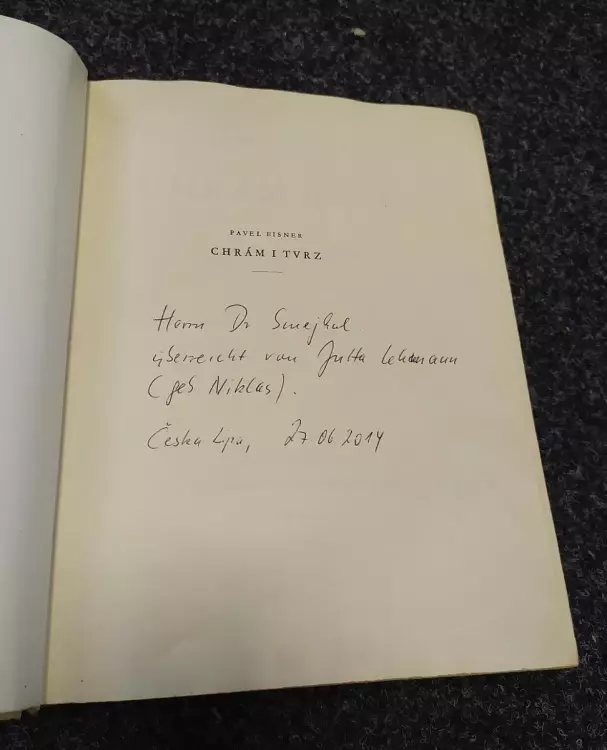 PAVEL EISNER
CHRÁM I TVRZ
Herrn Dr Smejkal
überreicht von Jutta Lehmann
(geb Niklas).
Česka Lipa, 27.06 2014